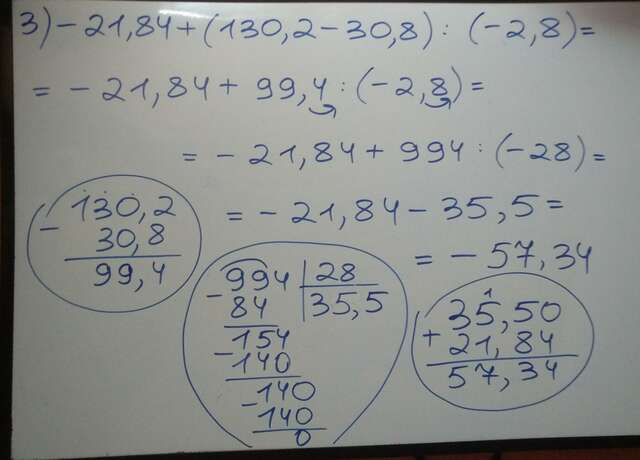 3) - 21,84 + (130,2 - 30,8) : (-2,8) =
= - 21,84 + 99,4 : (-2,8) =
= - 21,84 + 994 : (-28) =
= - 21,84 - 35,5 =
= - 57,34
- 130,2
30,8
99,4
- 994 | 28
84 | 35,5
- 154
140
- 140
140
0
1
35,50
+ 21,84
57,34